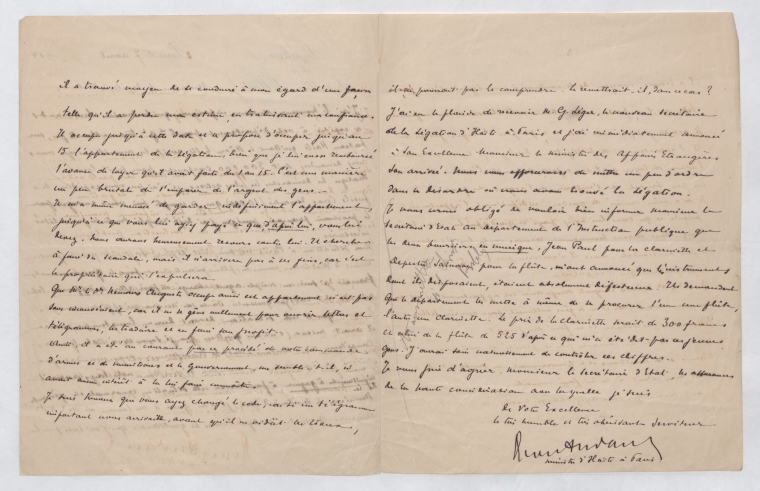 il a trouvé moyen de se conduire à mon égard d'une façon
telle qu'il a perdu mon estime en trahissant ma confiance.
Il occupe jusqu'à cette date et se propose d'occuper jusqu'au
15 l'appartement de la Légation, bien que je lui eusse remboursé
l'avance de loyer qu'il avait faite du 1 au 15. C'est une manière
un peu brutale de s'emparer de l'argent des gens.
Il m'a même menacé de garder indéfiniment l'appartement
jusqu'à ce que vous lui ayez payé ce que, d'après lui, vous lui
devez. Nous aurons heureusement recours contre lui. Il cherche
à faire du scandale, mais il n'arrivera pas à ses fins, car c'est
le propriétaire qui l'expulsera.
Que Mr le Dr Nemours Auguste occupe ainsi cet appartement n'est pas
sans inconvénient, car il ne se gêne nullement pour ouvrir lettres et
télégrammes, les traduire et en faire son profit.
Ainsi, il a été au courant par ce procédé de votre commande
d'armes et de munitions et le Gouvernement, ce semble-t-il, n'
avait aucun intérêt à la lui faire connaître.
Je suis heureux que vous ayez changé le code, car si un télégramme
important nous arrivait, avant qu'il ne vidât les lieux,
il ne pourrait pas le comprendre. Le remettrait-il, dans ce cas?
J'ai eu le plaisir de recevoir Mr G. Léger, le nouveau secrétaire
de la Légation d'Haïti à Paris et j'ai immédiatement annoncé
à Son Excellence Monsieur le Ministre des Affaires Etrangères
son arrivée. Nous nous efforcerons de mettre un peu d'ordre
dans le désordre où nous avons trouvé la Légation.
Je vous serais obligé de vouloir bien informer Monsieur le
Secrétaire d'Etat au département de l'Instruction publique que
les deux boursiers en musique, Jean Paul pour la clarinette et
Depestre Salnave pour la flûte, m'ont annoncé que les instruments
dont ils disposaient, étaient absolument défectueux. Ils demandent
que le département les mette à même de se procurer l'un une flûte,
l'autre une clarinette. Le prix de la clarinette serait de 300 francs
et celui de la flûte de 525 d'après ce qui m'a été dit par ces jeunes
gens. J'aurai soin naturellement de contrôler ces chiffres.
Je vous prie d'agréer, Monsieur le Secrétaire d'Etat, les assurances
de la haute considération avec laquelle je suis
De Votre Excellence
le très humble et très obéissant serviteur
Ministre d'Haïti à Paris